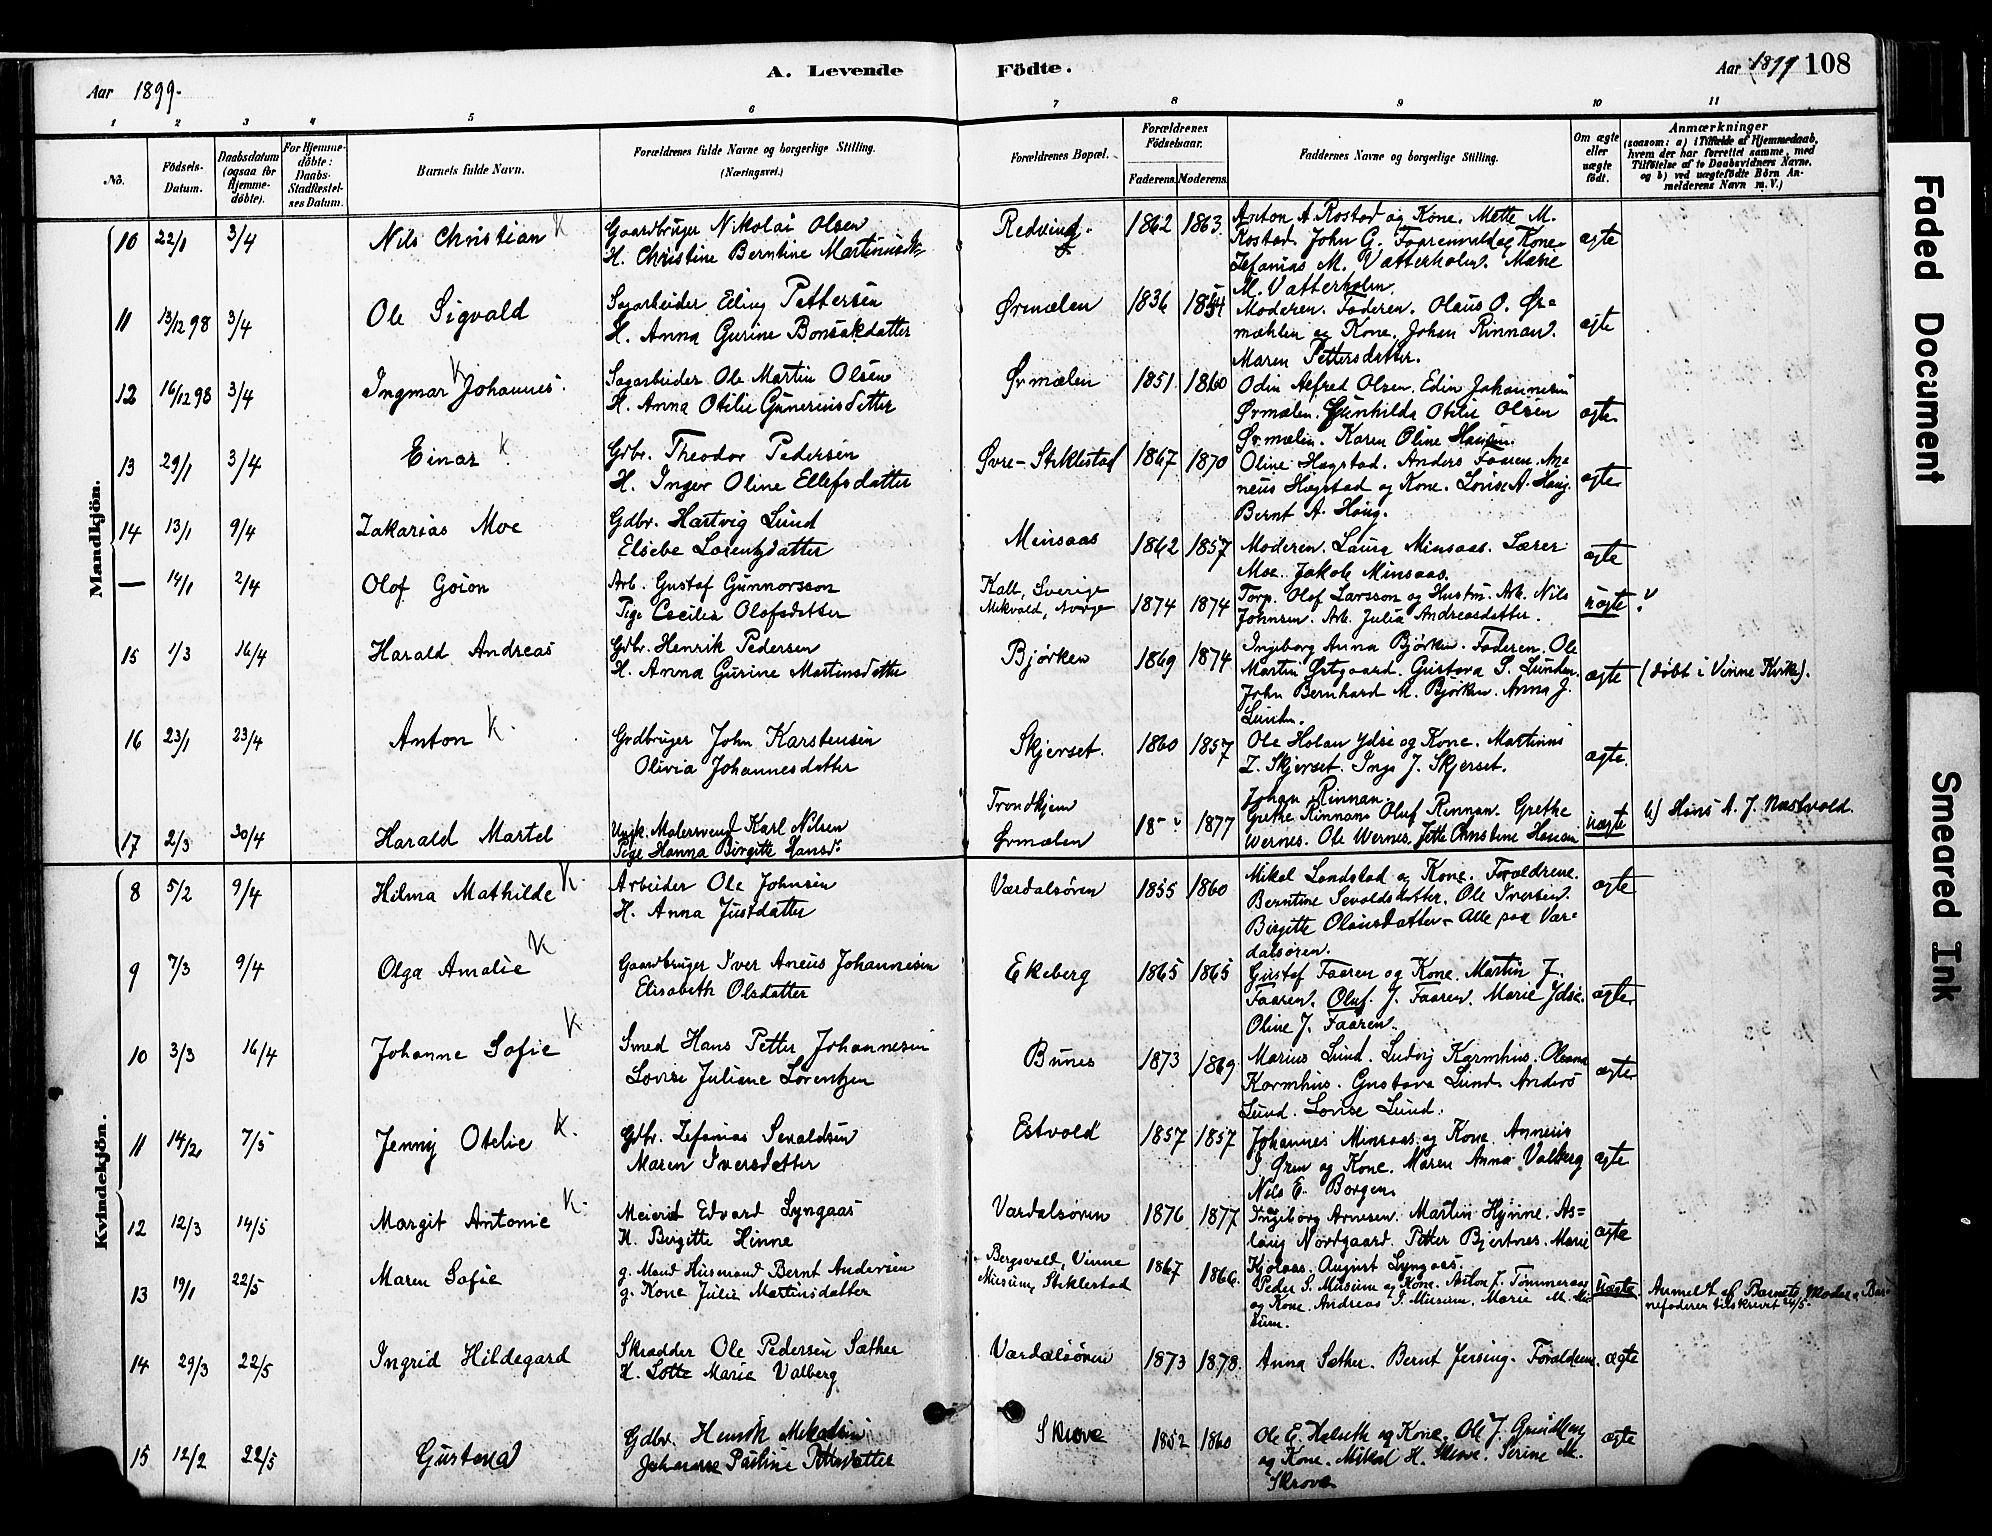 A. Levende
Födte.
Aar 1899.
Aar 1899 108
1 2 3 4 5 6 7 8 9 10 11
No.
Födsels-Datum.
Daabsdatum (ogsaa for Hjemme-döbte).
For Hjemme-döbte: Daabs-Stadfæstel-ses Datum.
Barnets fulde Navn.
Forældrenes fulde Navne og borgerlige Stilling.
(Næringsvei.)
Forældrenes Bopæl.
Forældrenes Födselsaar.
Faderens. Moderens.
Faddernes Navne og borgerlige Stilling.
Om ægte eller uægte födt.
Anmærkninger
(saasom: a) i Tilfælde af Hjemmedaab,
hvem der har forrettet samme, med
Tilföielse af to Daabsvidners Navne,
og b) ved uægtefödte Börn An-
melderens Navn m. V.)
Mandkjön.
10 22/1 3/4 Nils Christian K Gaardbruger Nikolai Olsen
H. Christine Berntine Martinusd.
Redving. 1862 1863 Anton A. Rostad og Kone. Mette M.
Rostad. John G. Faarenvald og Kone.
Zefanias M. Vatterholm. Marie
M. Vatterholm.
ægte
11 13/12 98 3/4 Ole Sigvald Sagarbeider Eding Pettersen
H. Anna Gurine Bonsakdatter
Ørmælen 1836 1854 Moderen. Faderen. Olaus O. Ør=
mæhlen og Kone. Johan Rinnan.
Maren Pettersdatter.
ægte
12 16/12 98 3/4 Ingmar Johannes. K Sagarbeider Ole Martin Olsen
H. Anna Otilie Guneriusdatter
Ørmælen 1851 1860 Odin Alfred Olsen. Edin Johannesen
Ørmælen. Gunhilda Otilie Olsen
Ørmælen. Karen Oline Hansen.
ægte
13 29/1 3/4 Einar K Gdbr. Theodor Pedersen
H. Inger Oline Ellefsdatter
Øvre-Stiklestad 1867 1870 Oline Hagstad. Anders Faaren. An-
neus Hagstad og Kone. Lovise A. Haug.
Bernt A. Haug.
ægte
14 13/1 9/4 Zakarias Moe Gdbr. Hartvig Lund
Elsebe Lorentzdatter
Minsaas 1862 1857 Moderen. Laura Minsaas. Lærer
Moe. Jakob Minsaas.
ægte
— 14/1 2/4 Olof Goion Arb. Gustaf Gunnarsson
Pige Cecilia Olofsdatter
Kall, Sverige
Mikvold, Norge 1874 1874 Torp. Olof Larsson og Hustru. Arb. Nils
Johnsen. Arb. Julia Andreasdatter.
uægte
15 1/3 16/4 Harald Andreas Gdbr. Henrik Pedersen
H. Anna Gurine Martinsdatter
Bjørken 1869 1874 Ingeborg Anna Bjørken. Faderen. Ole
Martin Østgaard. Gustava S. Lunden.
John Bernhard M. Bjørken. Anna J.
Lunden.
ægte (døbt i Vinne Kirke).
16 23/1 23/4 Anton K. Grdbruger John Karstensen
Olivia Johannesdatter
Skjerset. 1860 1857 Ole Holan Ydse og Kone. Martinus
Z. Skjerset. Inga J. Skjerset.
ægte.
17 2/3 30/4 Harald Martel Ungk. Malersvend Karl Nilsen
Pige Hanna Birgitte Hansd.
Trondhjem
Ørmælen 18- ? 1877 Johan Rinnan.
Grethe Rinnan. Oluf Rinnan. Grethe
Wernes. Ole Wernes. Jette Christine Hansen
uægte b) Hans A. J. Næstvold.
Kvindekjön.
8 5/2 9/4 Hilma Mathilde K. Arbeider Ole Johnsen
H. Anna Justdatter
Værdalsøren 1855 1860 Mikal Landstad og Kone. Forældrene.
Berntine Sevaldsdatter. Ole Iversen.
Birgitte Olausdatter. Alle paa Vær=
dalsøren.
ægte
9 7/3 9/4 Olga Amalie K Gaardbruger Iver Aneus Johannesen
Elisabeth Olsdatter
Ekeberg 1865 1865 Gustaf Faaren og Kone. Martin J.
Faaren. Oluf J. Faaren. Marie Ydse.
Oline J. Faaren.
ægte
10 3/3 16/4 Johanne Sofie K. Smed Hans Petter Johannesen
Lovise Juliane Lorentzen
Bunes 1873 1869 Marius Lund. Ludvig Karmhus. Oleana
Karmhus. Gustava Lund. Anders
Lund. Lovise Lund.
ægte
11 14/2 7/5 Jenny Otelie K. Gdbr. Zefanias Sevaldsen
Maren Iversdatter
Estvold 1857 1857 Johannes Minsaas og Kone. Anneus
J. Ørm og Kone. Maren Anna Valberg
Nils E. Borgen.
ægte
12 12/3 14/5 Margit Antonie K. Meierist Edvard Lyngaas
H. Birgitte Hinne
Værdalsøren 1876 1877 Ingeborg Arnesen. Martin Hynne. As=
laug Nordgaard. Petter Bjertnes. Marie
Kjølaas. August Lyngaas.
ægte
13 19/1 22/5 Maren Sofie g. Mand Husmand Bernt Andersen
g. Kone Julie Martinsdatter
Bergsvald, Vinne
Musum, Stiklestad 1867 1866. Peder S. Musum og Kone. Anton J. Tømmeraas
og Kone. Andreas I. Musum. Marie M. Mu-
sum.
uægte. Anmeldt af Barnets Moder. Bar-
nefaderen tilskrevet 24/5.
14 29/3 22/5 Ingrid Hildegard Skrædder Ole Pedersen Sæther
H. Lotte Marie Valberg
Værdalsøren 1873 1878. Anna Sæther. Bernt Jersing. Forældrene. ægte
15 12/2 22/5 Gustava Gdbr. Henrik Mikalsen
Johanna Pauline Pettersdatter
Skrove 1852 1860 Ole E. Halseth og Kone. Ole J. Grundberg
og Kone. Mikal H. Skrove. Serine M.
Skrove.
ægte
Faded Document
Smeared Ink